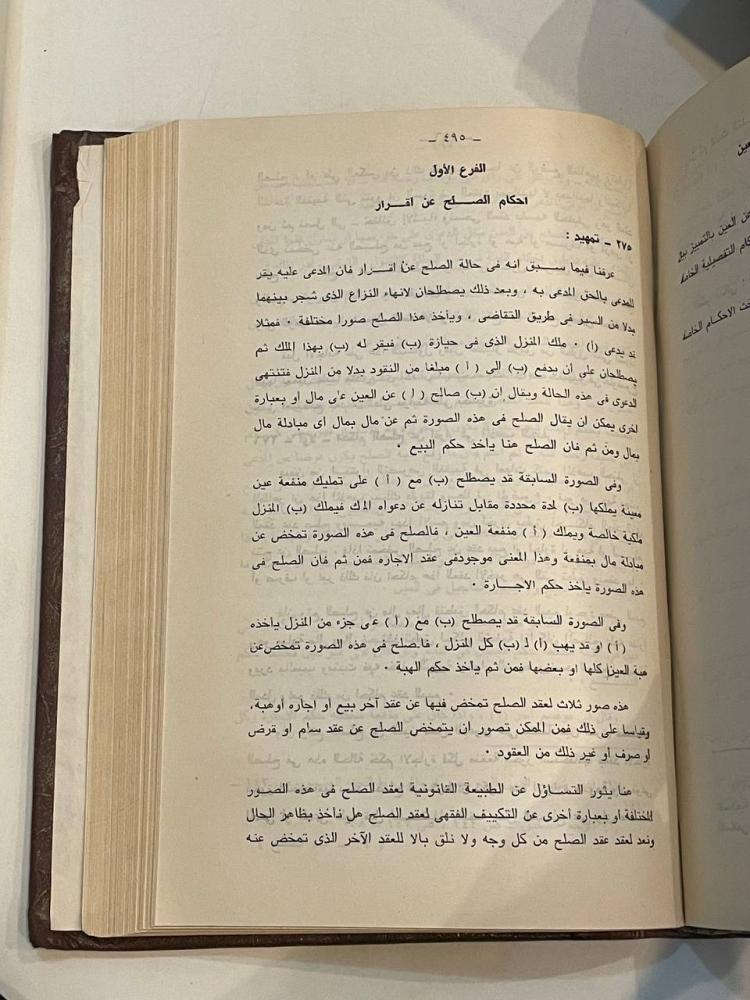 — ٤٩٥ —
الفرع الأول
احكام الصلح عن اقرار
٢٧٥ — تمهيد :
عرفنا فيما سبق انه فى حالة الصلح عن اقرار فان المدعى عليه يقر
للمدعى بالحق المدعى به ، وبعد ذلك يصطلحان لانهاء النزاع الذى شجر بينهما
بدلا من السير فى طريق التقاضى ، ويأخذ هذا الصلح صورا مختلفة ٠ فمثلا
قد يدعى (أ) ٠ ملك المنزل الذى فى حيازة (ب) فيقر له (ب) بهذا الملك ثم
يصطلحان على ان يدفع (ب) الى ( أ ) مبلغا من النقود بدلا من المنزل فتنتهى
الدعوى فى هذه الحالة ويقال ان (ب) صالح ( أ ) عن العين على مال او بعبارة
اخرى يمكن ان يقال الصلح فى هذه الصورة تم عن مال بمال اى مبادلة مال
بمال ومن ثم فان الصلح هنا يأخذ حكم البيع ٠
وفى الصورة السابقة قد يصطلح (ب) مع ( أ ) على تمليك منفعة عين
معينة يملكها (ب) لمدة محددة مقابل تنازله عن دعواه الملك فيملك (ب) المنزل
ملكية خالصة ويملك ( أ ) منفعة العين ، فالصلح فى هذه الصورة تمخض عن
مبادلة مال بمنفعة وهذا المعنى موجودفى عقد الاجاره فمن ثم فان الصلح فى
هذه الصورة يأخذ حكم الاجارة ٠
وفى الصورة السابقة قد يصطلح (ب) مع ( أ ) على جزء من المنزل يأخذه
( أ ) او قد يهب (أ) لـ (ب) كل المنزل ، فالصلح فى هذه الصورة تمخض عن
هبة العين كلها او بعضها فمن ثم يأخذ حكم الهبة ٠
هذه صور ثلاث لعقد الصلح تمخض فيها عن عقد آخر بيع او اجاره أوهبة،
وقياسا على ذلك فمن الممكن تصور ان يتمخض الصلح عن عقد سلم او قرض
او صرف أو غير ذلك من العقود ٠
هنا يثور التساؤل عن الطبيعة القانونية لعقد الصلح فى هذه الصور
المختلفة او بعبارة أخرى عن التكييف الفقهى لعقد الصلح هل نأخذ بظاهر الحال
ونعد لعقد عقد الصلح من كل وجه ولا نلق بالا للعقد الآخر الذى تمخض عنه
ن العين بالتمييز بين
كام التفصيلية الخاصة
حث الاحكام الخاصة